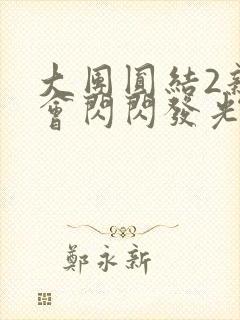 大團圓結2新
會閃閃發光
鄭永新